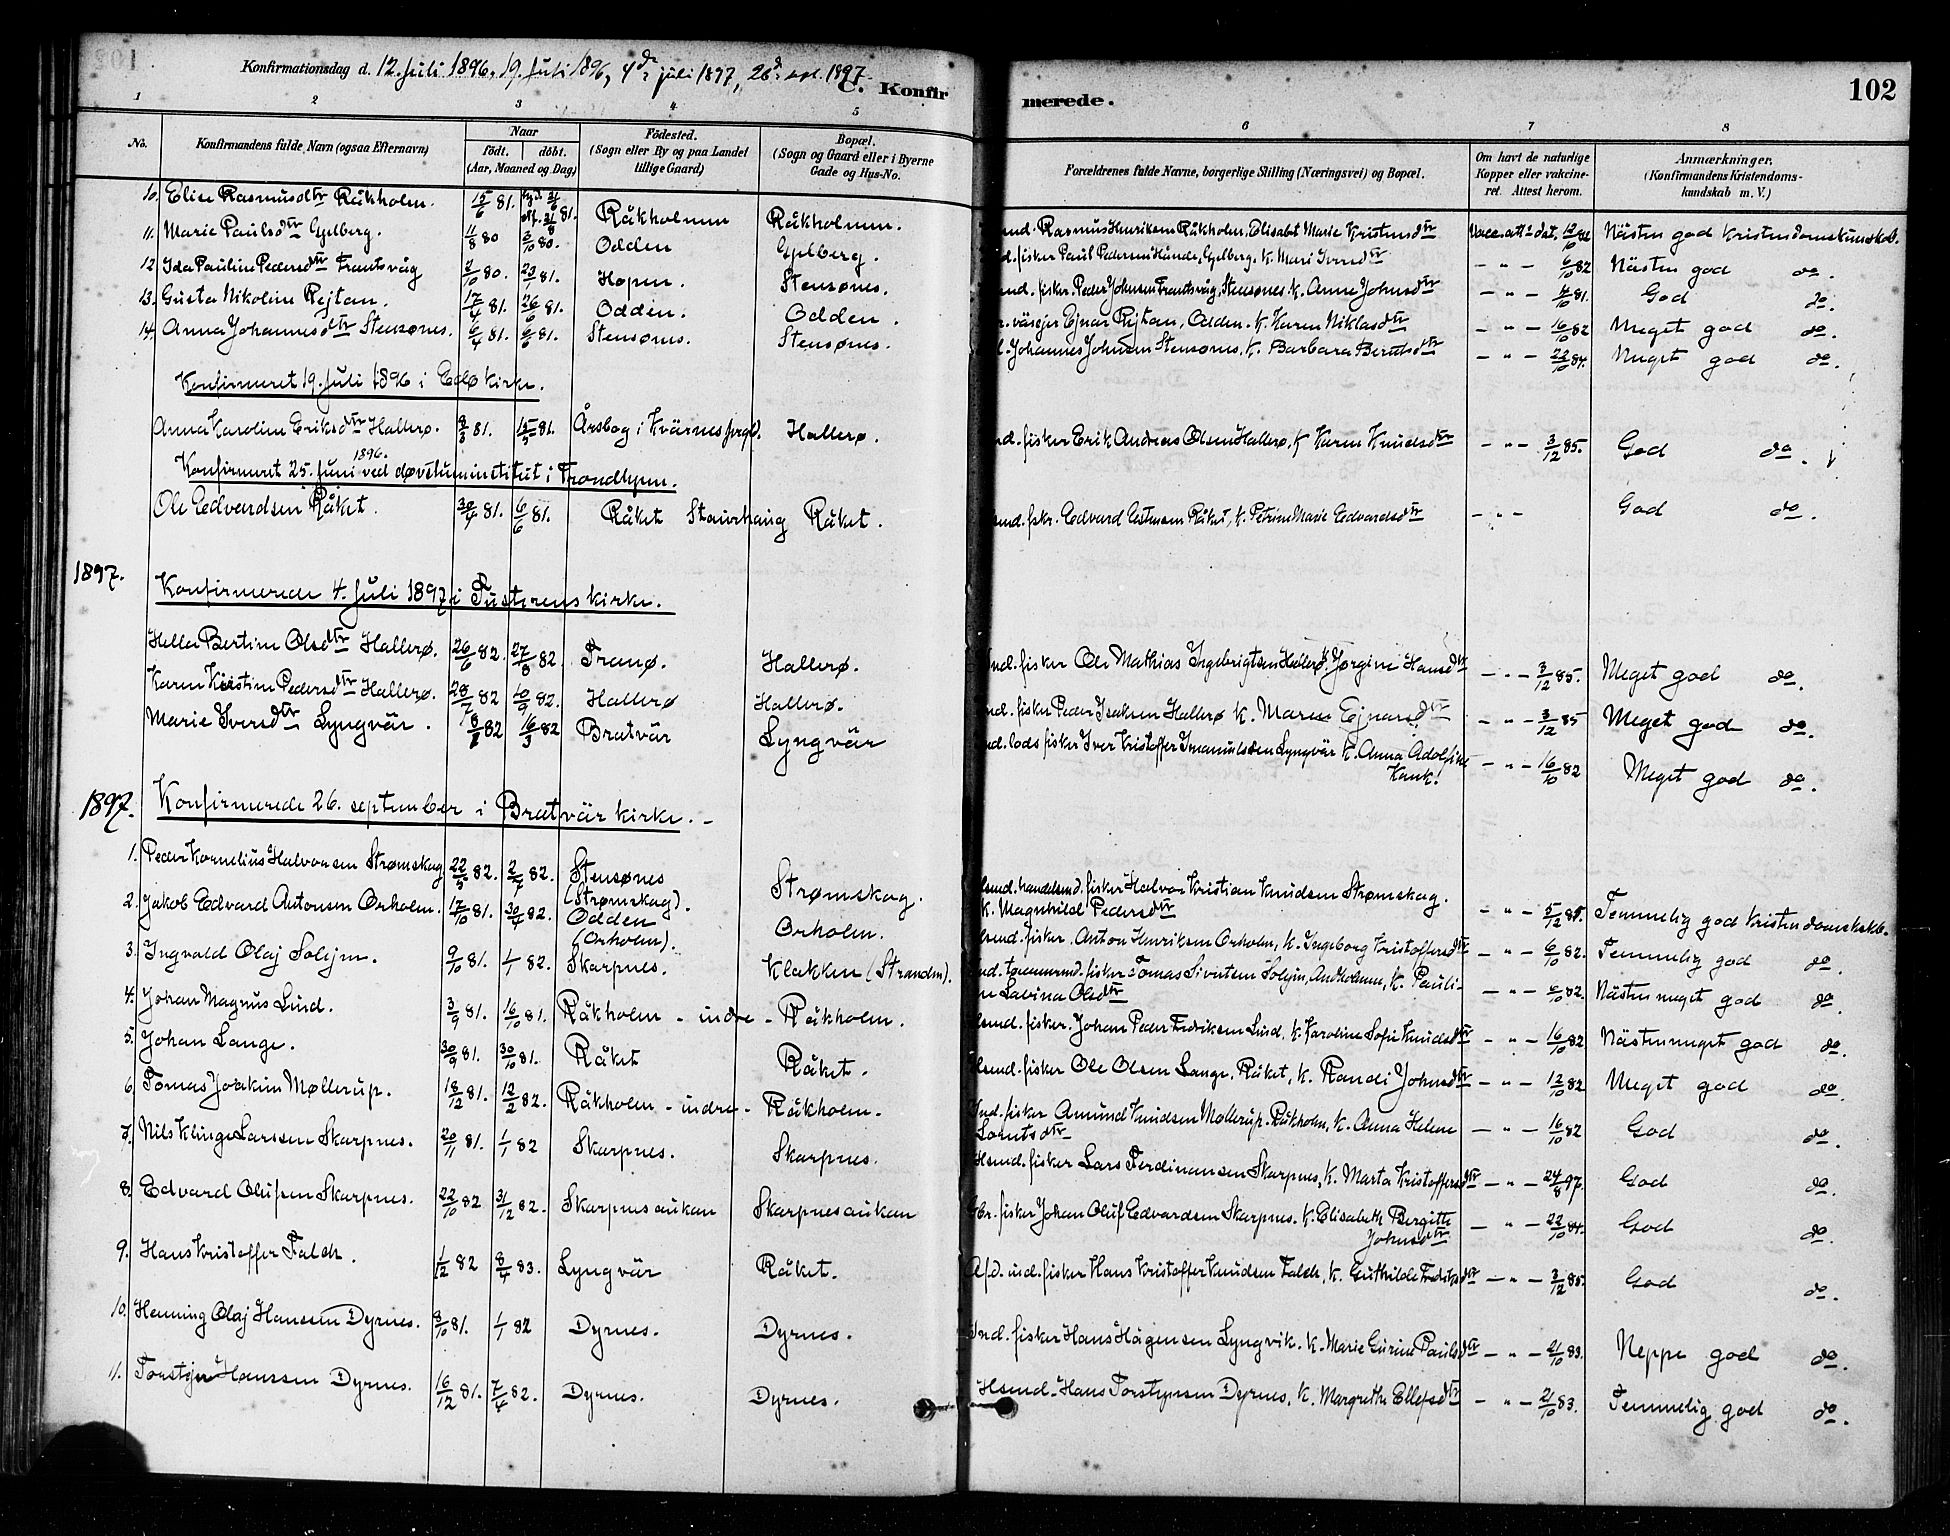 Konfirmationsdag d. 12. Juli 1896, 19. Juli 1896, 4de juli 1897, 26de 1897
C. Konfirmerede. 102
1 2 3 4 5 6 7 8
No. Konfirmandens fulde Navn (ogsaa Efternavn) Naar født. døbt. (Aar, Maaned og Dag) Fødested. (Sogn eller By og paa Landet tillige Gaard) Bopæl. (Sogn og Gaard eller i Byerne Gade og Hus-No. Forældrenes fulde Navne, borgerlige Stilling (Næringsvei) og Bopæl. Om havt de naturlige Kopper eller vakcineret. Attest herom. Anmærkninger. (Konfirmandens Kristendomskundskab m. V.)
10. Elise Rasmusdtr Råkholm. 15/6 81. 81. Råkholmen Råkholmen. Rasmus Henriksen Råkholm, Elisabt Marie Kristensdtr Vacc. att. dat. 12/10 82 Nästen god Kristendomskundskb.
11. Marie Paulsdtr Gjelberg. 11/8 80 3/10 80. Odden Gjelberg. fisker Paul Pedersen Gjelberg. K. Mari Iversdtr - " - 6/10 82 Nästen god do.
12 Ida Pauline Pedersdtr Frantsvåg 2/10 80. 23/1 81. Hopen. Stensønes. fisker. Peder Johnsen Frantsvåg, Stensønes K. Anne Johnsdtr - " - 4/10 81. God do.
13. Gusta Nikoline Rejtan. 17/4 81. 26/6 81. Odden. Odden. Ejnar Rejtan, Odden. K. Karen Niklasdtr - " - 16/10 82 Meget god do.
14. Anna Johannesdtr Stensønes. 6/4 81. 6/6 81. Stensønes. Stensønes. Johannes Johnsen Stensønes, K. Barbara Berntsdtr - " - 22/10 84. Meget god do.
Konfirmeret 19. Juli 1896 i Edø kirke.
Anna Karoline Eriksdtr Hallerø. 8/3 81. 15/5 81. Årsbog i Kvärnes prgd. Hallerø. fisker Erik Andreas Olsen Hallerø, K Karen Knudsdtr - " - 3/12 85. God do.
Konfirmeret 25. Juni 1896. ved døvstuminstitut i Trondhjem.
Ole Edvardsen Råket. 30/4 81. 6/6 81. Råket Staurhaug Råket. Edvard Estensen Råket, K. Petrine Marie Edvardsdtr - " - God do.
1897. Konfirmerede 4. Juli 1897 i Tusterens kirke.
Hella Bertine Olsdtr Hallerø. 26/6 82. 27/8 82. Tranø. Hallerø. Ind. fisker Ole Mathias Ingebrigtsen Hallerø, K. Jørgine Hansdtr - " - 3/12 85. Meget god do.
Karen Kristine Pedersdtr Hallerø. 28/7 82 10/9 82. Hallerø Hallerø. Ind. fisker Peder Isaksen Hallerø K. Maren Ejnarsdtr - " - 3/12 85 Meget god do.
Marie Iversdtr Lyngvär. 82 16/3 82 Bratvär Lyngvär Ind. lods fisker Iver Kristoffer Imanuelsen Lyngvär K. Anna Adolfine Kank! - " - 16/10 82 Meget god do.
1897. Konfirmerede 26. september i Bratvär kirke.
1. Peder Kornelius Halvorsen Strømskag 22/5 82. 2/7 82. Stensønes (Strømskag). Strømskag. handelsmd. fisker Halvor Kristian Knudsen Strømskag. K. Magnhild Pedersdtr - " - 5/12 85. Temmelig god Kristendomskskb.
2. Jakob Edvard Antonsen Orholm. 17/10 81. 30/4 82. Odden (Orholm). Orholm. fisker. Anton Henriksen Orholm, K. Ingeborg Kristoffersdtr - " - 6/10 82. Temmelig god do.
3. Ingvald Olaj Solejm. 9/10 81. 1/1 82. Skarpnes. Klakken (Stranden). tømmermd. fisker Tomas Sivertsen Solejm, K. Pauline Lavina Olsdtr - " - 6/10 82. Nästen meget god do.
4. Johan Magnus Lind. 3/9 81. 16/10 81. Råkholm - indre - Råkholm. fisker. Johan Peder Fredriksen Lind, K. Karoline Sofie Knudsdtr - " - 16/10 82 Nästen meget god do.
5. Johan Lange. 30/9 81. 30/10 81. Råket Råket. fisker Ole Olsen Lange, Råket, K. Randi Johnsdtr - " - 12/10 82 Meget god do.
6. Tomas Joakim Møllerup. 18/12 81. 12/2 82. Råkholm - indre - Råkholm. Ind. fisker Amund Knudsen Møllerup. Råkholm, K. Anna Helene Lorntsdtr - " - 16/10 82 God do.
7. Nils Klinge Larssen Skarpnes. 20/11 81. 1/1 82 Skarpnes. Skarpnes. Hsmd. fisker Lars Ferdinansen Skarpnes, K. Marta Kristoffersdtr - " - 24/8 97. God do.
8. Edvard Olufsen Skarpnes. 22/10 82 31/12 82. Skarpnesaukan Skarpnesaukan Gbr. fisker Johan Oluf Edvardsen Skarpnes. K. Elisabeth Bergitte Johnsdtr - " - 22/10 84. God do.
9. Hans Kristoffer Falch. 1/12 82 8/4 83. Lyngvär Råket. Afd. ind. fisker Hans Kristoffer Knudsen Falch, K. Guthilde Fredriksdtr - " - 3/12 85. God do.
10. Henning Olaj Hansen Dyrnes. 8/10 81. 1/1 82 Dyrnes. Dyrnes. Ind. fisker Hans Hågensen Lyngvik. K. Marie Gurine Paulsdtr - " - 21/10 83. Neppe god do.
11. Torstejn Hanssen Dyrnes. 16/12 81. 7/4 82. Dyrnes. Dyrnes. Hsmd. Hans Torstensen Dyrnes, K. Margrethe Ellefsdtr - " - 21/10 83. Temmelig god do.